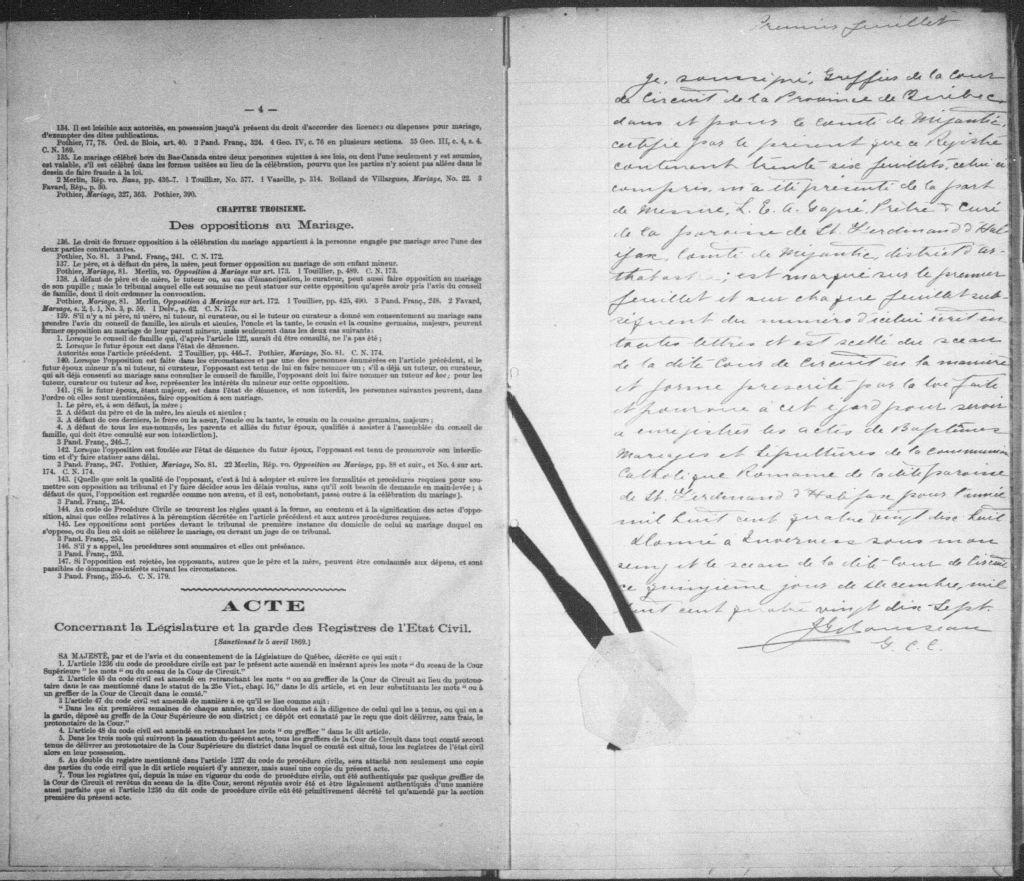 — 4 —
134. Il est loisible aux autorités, en possession jusqu'à présent du droit d'accorder des licences ou dispenses pour mariage,
d'exempter des dites publications.
Pothier, 77, 78. Ord. de Blois, art. 40. 2 Pand. Franç., 324. 4 Geo. IV, c. 76 en plusieurs sections. 35 Geo. III, c. 4, s. 4.
C. N. 169.
135. Le mariage célébré hors du Bas-Canada entre deux personnes sujettes à ses lois, ou dont l'une seulement y est soumise,
est valable, s'il est célébré dans les formes usitées au lieu de la célébration, pourvu que les parties n'y soient pas allées dans le
dessein de faire fraude à la loi.
2 Merlin, Rép. vo. Bans, pp. 436-7. 1 Touillier, No. 577. 1 Vazeille, p. 314. Rolland de Villargues, Mariage, No. 22. 3
Favard, Rép., p. 30.
Pothier, Mariage, 327, 363. Pothier, 390.
CHAPITRE TROISIEME.
Des oppositions au Mariage.
136. Le droit de former opposition à la célébration du mariage appartient à la personne engagée par mariage avec l'une des
deux parties contractantes.
Pothier, No. 81. 3 Pand. Franç., 241. C. N. 172.
137. Le père, et à défaut du père, la mère, peut former opposition au mariage de son enfant mineur.
Pothier, Mariage, 81. Merlin, vo. Opposition à Mariage sur art. 173. 1 Touillier, p. 489. C. N. 173.
138. A défaut de père et de mère, le tuteur ou, au cas d'émancipation, le curateur, peut aussi faire opposition au mariage
de son pupille ; mais le tribunal auquel elle est soumise ne peut statuer sur cette opposition qu'après avoir pris l'avis du conseil
de famille, dont il doit ordonner la convocation.
Pothier, Mariage, 81. Merlin, Opposition à Mariage sur art. 172. 1 Touillier, pp. 425, 490. 3 Pand. Franç., 248. 2 Favard,
Mariage, s. 2, § 1, No. 3, p. 59. 1 Delv., p. 62. C. N. 175.
139. S'il n'y a ni père, ni mère, ni tuteur, ni curateur, ou si le tuteur ou curateur a donné son consentement au mariage sans
prendre l'avis du conseil de famille, les aïeuls et aïeules, l'oncle et la tante, le cousin et la cousine germains, majeurs, peuvent
former opposition au mariage de leur parent mineur, mais seulement dans les deux cas suivants :
1. Lorsque le conseil de famille qui, d'après l'article 122, aurait dû être consulté, ne l'a pas été ;
2. Lorsque le futur époux est dans l'état de démence.
Autorités sous l'article précédent. 2 Touillier, pp. 446-7. Pothier, Mariage, No. 81. C. N. 174.
140. Lorsque l'opposition est faite dans les circonstances et par une des personnes énumérées en l'article précédent, si le
futur époux mineur n'a ni tuteur, ni curateur, l'opposant est tenu de lui en faire nommer un ; s'il a déjà un tuteur, ou curateur,
qui ait déjà consenti au mariage sans consulter le conseil de famille, l'opposant doit lui faire nommer un tuteur ad hoc ; pour les
tuteur, curateur ou tuteur ad hoc, représenter les intérêts du mineur sur cette opposition.
141. [Si le futur époux, étant majeur, est dans l'état de démence, et non interdit, les personnes suivantes peuvent, dans
l'ordre où elles sont mentionnées, faire opposition à son mariage.
1. Le père, et, à son défaut, la mère ;
2. A défaut du père et de la mère, les aïeuls et aïeules ;
3. A défaut de ces derniers, le frère ou la sœur, l'oncle ou la tante, le cousin ou la cousine germains, majeurs ;
4. A défaut de tous les sus-nommés, les parents et alliés du futur époux, qualifiés à assister à l'assemblée du conseil de
famille, qui doit être consulté sur son interdiction].
3 Pand. Franç., 246-7.
142. Lorsque l'opposition est fondée sur l'état de démence du futur époux, l'opposant est tenu de promouvoir son interdic-
tion et d'y faire statuer sans délai.
3 Pand. Franç., 247. Pothier, Mariage, No. 81. 22 Merlin, Rép. vo. Opposition au Mariage, pp. 88 et suiv., et No. 4 sur art.
174. C. N. 174.
143. [Quelle que soit la qualité de l'opposant, c'est à lui à adopter et suivre les formalités et procédures requises pour sou-
mettre son opposition au tribunal et l'y faire décider sous les délais voulus, sans qu'il soit besoin de demande en main-levée ; à
défaut de quoi, l'opposition est regardée comme non avenu, et il est, nonobstant, passé outre à la célébration du mariage].
3 Pand. Franç., 254.
144. Au code de Procédure Civile se trouvent les règles quant à la forme, au contenu et à la signification des actes d'oppo-
sition, ainsi que celles relatives à la péremption décrétée en l'article précédent et aux autres procédures requises.
145. Les oppositions sont portées devant le tribunal de première instance du domicile de celui au mariage duquel on
s'oppose, ou du lieu où doit se célébrer le mariage, ou devant un juge de ce tribunal.
3 Pand. Franç., 253.
146. S'il y a appel, les procédures sont sommaires et elles ont préséance.
3 Pand. Franç., 253.
147. Si l'opposition est rejetée, les opposants, autres que le père et la mère, peuvent être condamnés aux dépens, et sont
passibles de dommages-intérêts suivant les circonstances.
3 Pand. Franç., 255-6. C. N. 179.
ACTE
Concernant la Législature et la garde des Registres de l'Etat Civil.
[Sanctionné le 5 avril 1869.]
SA MAJESTÉ, par et de l'avis et du consentement de la Législature de Québec, décrète ce qui suit :
1. L'article 1236 du code de procédure civile est par le présent acte amendé en insérant après les mots " du sceau de la Cour
Supérieure " les mots " ou du sceau de la Cour de Circuit."
2. L'article 45 du code civil est amendé en retranchant les mots " ou au greffier de la Cour de Circuit au lieu du protono-
taire dans le cas mentionné dans le statut de la 25e Vict., chap. 16," dans le dit article, et en leur substituants les mots " ou à
un greffier de la Cour de Circuit dans le comté."
3 L'article 47 du code civil est amendé de manière à ce qu'il se lise comme suit :
" Dans les six premières semaines de chaque année, un des doubles est à la diligence de celui qui les a tenus, ou qui en a
la garde, déposé au greffe de la Cour Supérieure de son district ; ce dépôt est constaté par le reçu que doit délivrer, sans frais, le
protonotaire de la Cour."
4. L'article 48 du code civil est amendé en retranchant les mots " ou greffier " dans le dit article.
5. Dans les trois mois qui suivront la passation du présent acte, tous les greffiers de la Cour de Circuit dans tout comté seront
tenus de délivrer au protonotaire de la Cour Supérieure du district dans lequel ce comté est situé, tous les registres de l'état civil
alors en leur possession.
6. Au double du registre mentionné dans l'article 1237 du code de procédure civile, sera attaché non seulement une copie
des parties du code civil que le dit article requiert d'y annexer, mais aussi une copie du présent acte.
7. Tous les registres qui, depuis la mise en vigueur du code de procédure civile, ont été authentiqués par quelque greffier de
la Cour de Circuit et revêtus du sceau de la dite Cour, seront réputés avoir été et être légalement authentiqués d'une manière
aussi parfaite que si l'article 1236 du dit code de procédure civile eût été primitivement décrété tel qu'amendé par la section
première du présent acte.
Premier feuillet
Je, soussigné, Greffier de la Cour
de Circuit de la Province de Québec
dans et pour le comté de Mégantic,
certifie par le présent que ce Registre
contenant trente six feuillets, celui ci
compris, m'a été présenté de la part
de Messire, L. E. A. Gagné, Prêtre & Curé
de la paroisse de St. Ferdinand d'Hal
ifax, comté de Mégantic, district d'Ar-
thabaska ; est marqué sur le premier
feuillet et sur chaque feuillet sub-
séquent du numéro d'icelui écrit en
toutes lettres et est scellé du sceau
de la dite Cour de Circuit en la manière
et forme prescrite par la loi faite
et pourvue a cet egard pour servir
a enregistrer les actes de Baptêmes
Mariages et sepultures de la communion
Catholique Romaine de la dite paroisse
de St. Ferdinand d'Halifax pour l'année
mil huit cent quatre vingt dix huit
Donné a Inverness sous mon
seing et le sceau de la dite Cour de Circuit
ce quinzième jour de Decembre, mil
huit cent quatre vingt dix-Sept.
G. C. C.